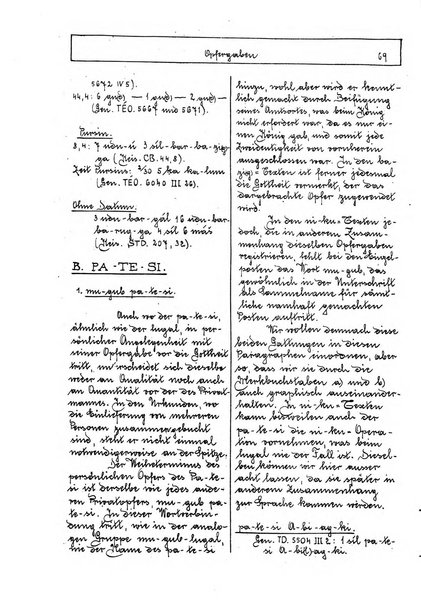 Opfergaben 69
5672 IV 5).
44,4: 6 gud) — 1 gud) — 2 gud) —
(Gen. TÉO. 5667 und 5671).
Pursin.
8,4: 7 udu-ú 3 sil-bar-ba-zig-
ga (Reis. CB. 44,8).
Zeit Pursins: 2/30 5 ka ka-lum
(Gen. TÉO. 6040 III 36).
Ohne Datum.
3 udu-bar-gál 16 udu-bar-
ba-rug-ga 1 sil 6 máš
(Reis. STD. 207, 32).
B. PA-TE-SI.
1. mu-gub pa-te-si.
Auch wo der pa-te-si,
ähnlich wie der lugal, in per-
sönlicher Angelegenheit mit
seiner Opfergabe vor die Gottheit
tritt, unterscheidet sich dieselbe
weder an Qualität noch auch
an Quantität vor der des Privat-
mannes. In den Urkunden, wo
die Einlieferung von mehreren
Personen zusammengebucht
sind, steht er nicht einmal
notwendigerweise an der Spitze.
Der Weiheterminus des
persönlichen Opfers des Pa-te-
si ist derselbe wie jedes ande-
ren Privatopfers, mu-gub pa-
te-si. In dieser Wortverbin-
dung tritt, wie in der analo-
gen Gruppe mu-gub-lugal,
nie der Name des pa-te-si
hinzu, wohl aber wird er kennt-
lich gemacht durch Beifügung
seines Amtortes, was beim König
nicht erfordert war, da es nur ei-
nen König gab, und somit jede
Zweideutigkeit von vornherein
ausgeschlossen war. In den ba-
zig-Texten ist ferner jedesmal
die Gottheit vermerkt, der das
dargebrachte Opfer zugewendet
wird.
In den ni-ku-Texten je-
doch, die in anderem Zusam-
menhang dieselben Opfergaben
registrieren, fehlt bei den Einzel-
posten das Wort mu-gub, das
gewöhnlich in der Unterschrift
als Sammelname für sämt-
liche namhaft gemachten
Posten auftritt.
Wir wollen demnach diese
beiden Gattungen in diesen
Paragraphen einordnen, aber
so, dass wir sie durch die
Merkbuchstaben a) und b)
auch graphisch auseinander-
halten. In ni-ku-Texten
kann bisweilen auch der
pa-te-si die ni-ku-Opera-
tion vornehmen, was beim
lugal nie der Fall ist. Diesel-
ben können wir hier ausser
acht lassen, da sie später in
anderem Zusammenhang
zur Sprache kommen werden.
pa-te-si A-bi-ag-ki.
Gen. TD. 5504 III 2: 1 sil pa-te-
si A-bi(š)ag-ki.